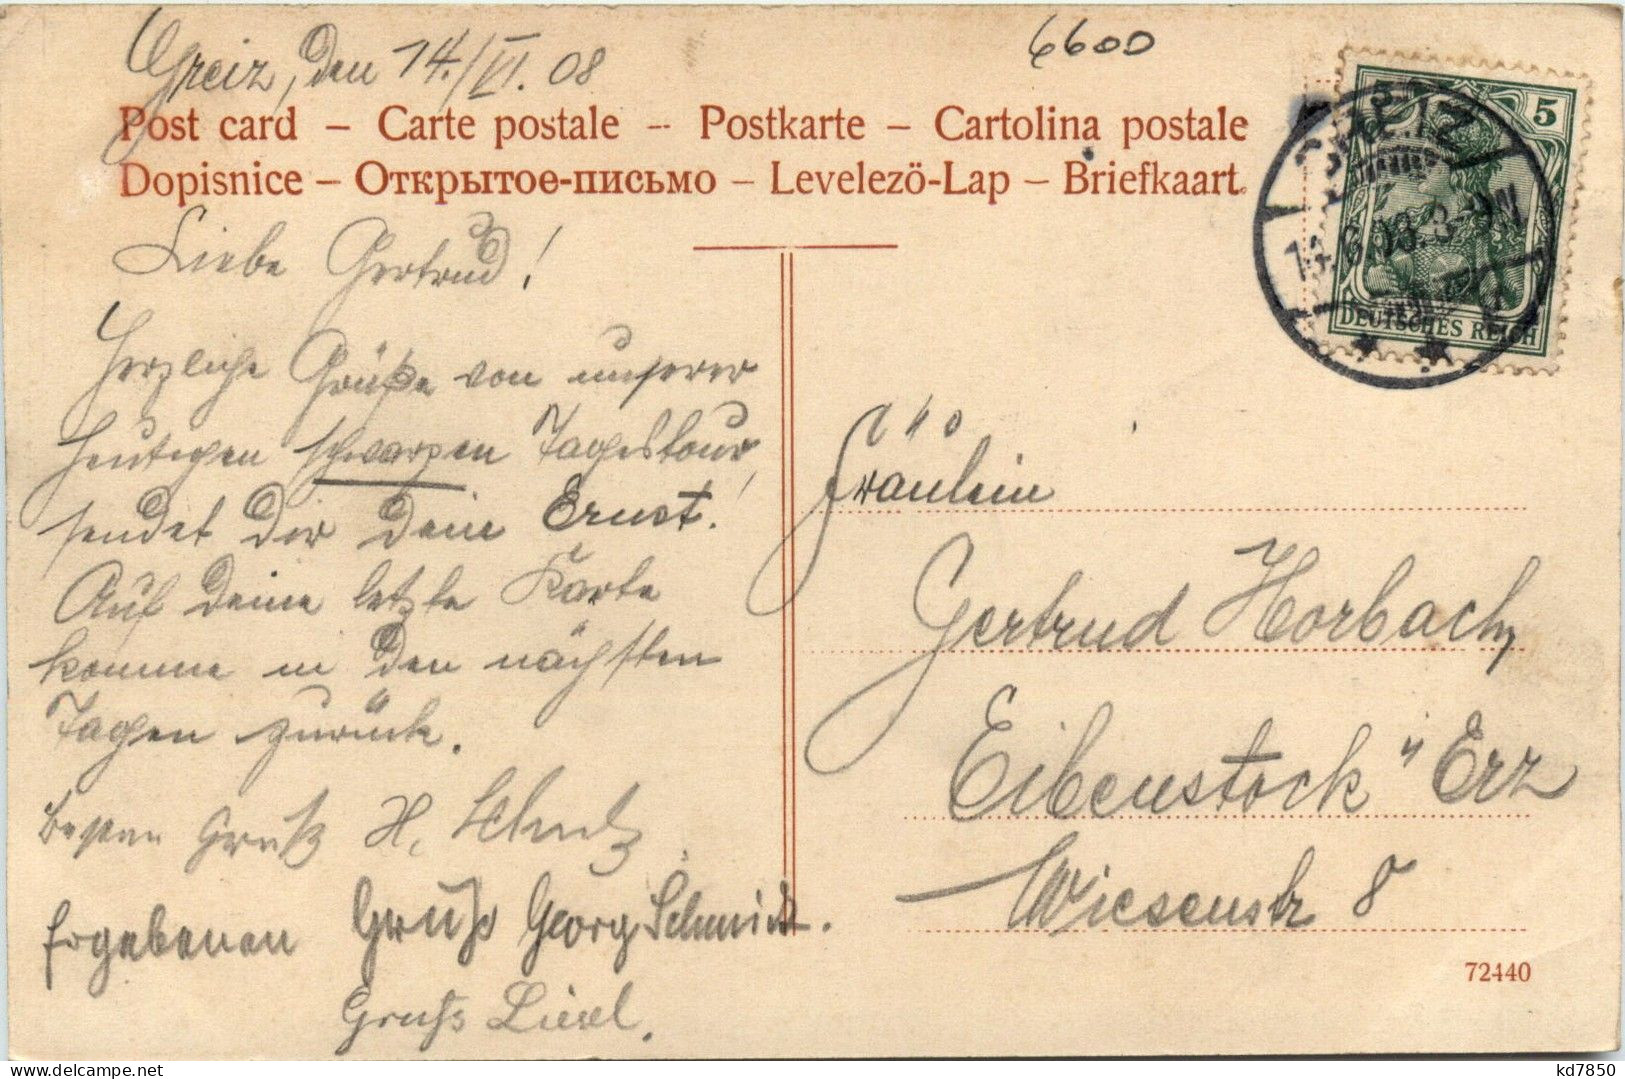 Greiz, den 14./VI. 08
6600
Post card – Carte postale – Postkarte – Cartolina postale
Dopisnice – Открытое-письмо – Levelezö-Lap – Briefkaart.
5
DEUTSCHES REICH
GREIZ
Liebe Gertrud!
Herzliche Grüße von unserer
heutigen schwarzen Tagestour,
sendet Dir Dein Ernst!
Auf Deine letzte Karte
komme in den nächsten
Tagen zurück.
Besten Gruß H.
Ergebenen Gruß Georg Schmidt.
Gruß Liesel.
Fräulein
Gertrud Horbach,
Eibenstock i/ Erz
Wiesenstr 8
72440
kd7850